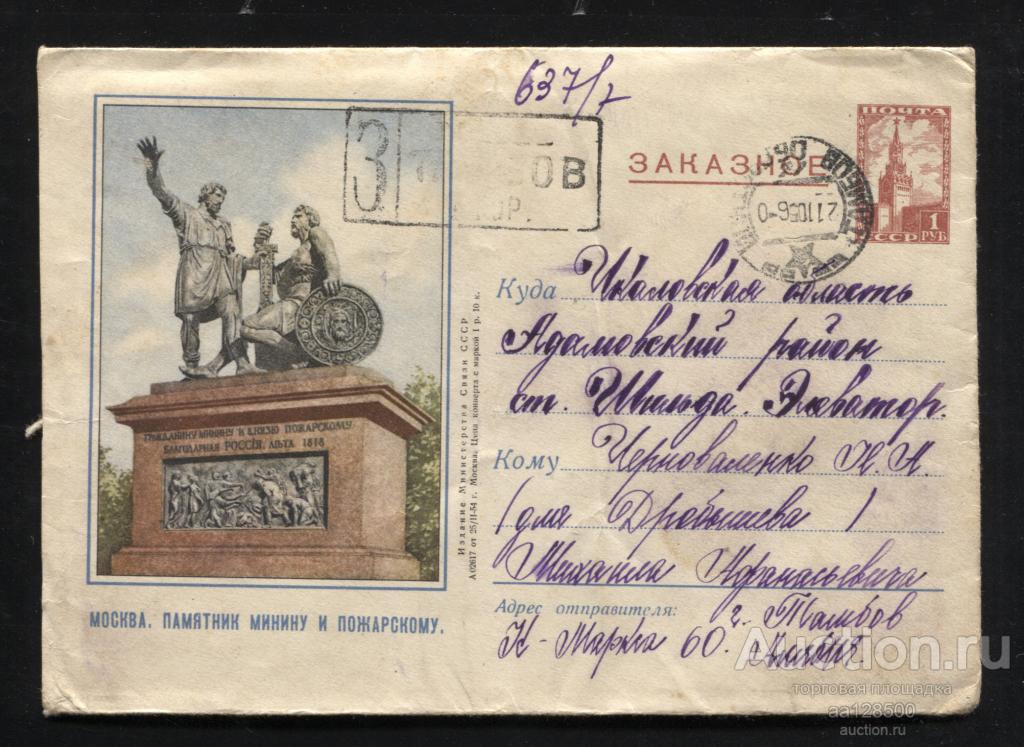 637/7
З ОВ
ЗАКАЗНОЕ
ПОЧТА
1 РУБ
СССР
Куда Чкаловская область
Адамовский район
ст. Шильда. Экватор.
Кому Черноваленко Н. А.
(для Дробышева)
Михаила Афанасьевича
Адрес отправителя: г. Тамбов
К-Маркса 60.
ГРАЖДАНИНУ МИНИНУ И КНЯЗЮ ПОЖАРСКОМУ
БЛАГОДАРНАЯ РОССІЯ. ЛѢТА 1818
МОСКВА. ПАМЯТНИК МИНИНУ И ПОЖАРСКОМУ.
Издание Министерства Связи СССР
А 02617 от 25/II-54 г. Москва. Цена конверта с маркой 1 р. 10 к.
Auction.ru
торговая площадка
aa128500
auction.ru